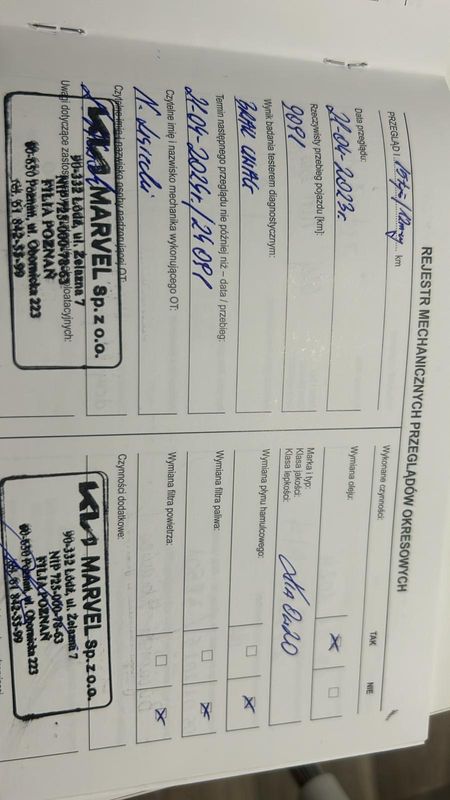 REJESTR MECHANICZNYCH PRZEGLĄDÓW OKRESOWYCH
PRZEGLĄD I. km
Data przeglądu:
21-04-2023r.
Rzeczywisty przebieg pojazdu [km]:
9091
Wynik badania testerem diagnostycznym:
BRAK UWAG
Termin następnego przeglądu nie później niż – data / przebieg:
21-04-2024r. / 24091
Czytelne imię i nazwisko mechanika wykonującego OT:
Czytelne imię i nazwisko osoby nadzorującej OT:
Uwagi dotyczące
KIA MARVEL Sp. z o.o.
90-332 Łódź, ul. Zelazna 7
NIP 725-000-78-63
FILIA POZNAŃ
60-650 Poznań, ul. Obornicka 223
tel. 61 842-55-99
Wykonane czynności: TAK NIE
Wymiana oleju:
Marka i typ:
Klasa jakości:
Klasa lepkości:
0W20
Wymiana płynu hamulcowego:
Wymiana filtra paliwa:
Wymiana filtra powietrza:
Czynności dodatkowe:
KIA MARVEL Sp. z o.o.
90-332 Łódź, ul. Zelazna 7
NIP 725-000-78-63
FILIA POZNAŃ
60-650 Poznań, ul. Obornicka 223
tel. 61 842-55-99